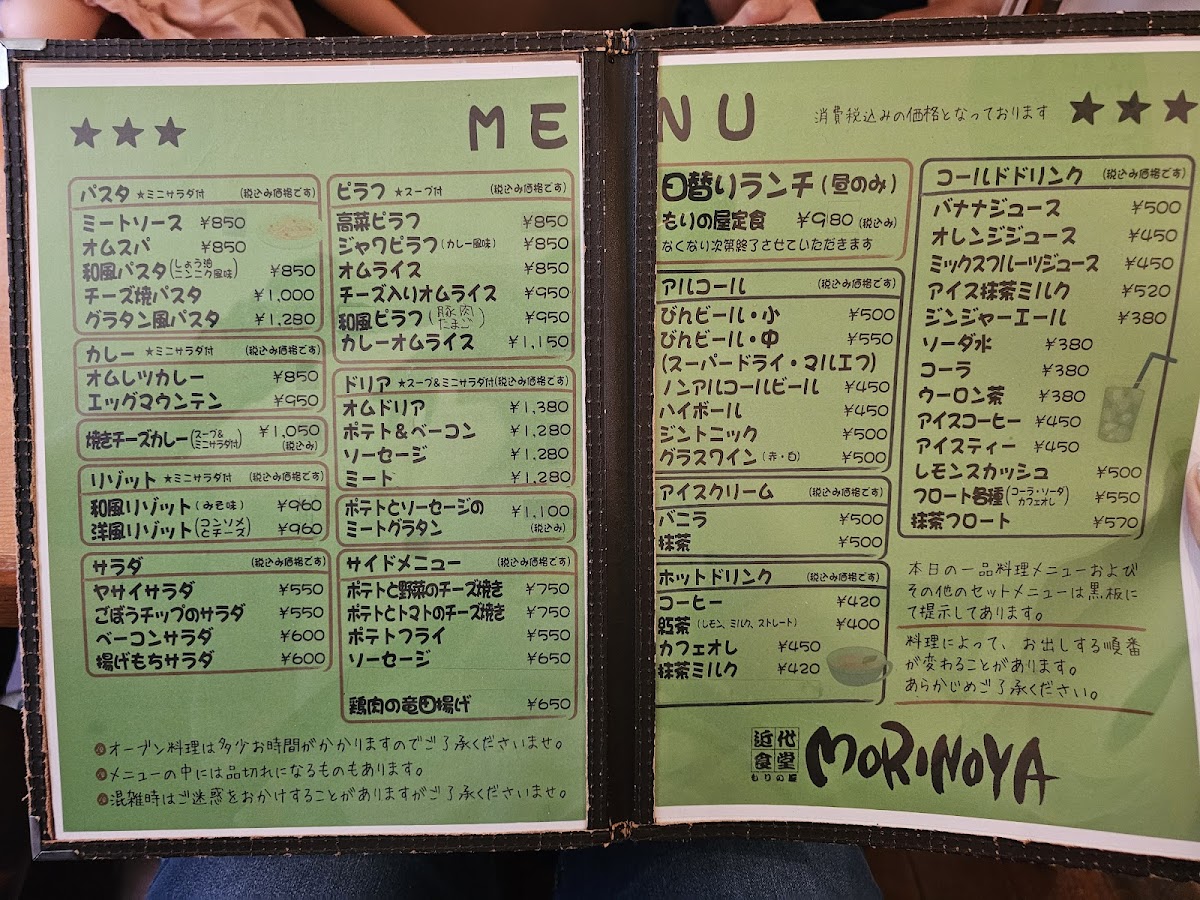 ★★★ MENU
消費税込みの価格となっております ★★★
パスタ ★ミニサラダ付 (税込み価格です)
ミートソース ¥850
オムスパ ¥850
和風パスタ(しょう油ニンニク風味) ¥850
チーズ焼パスタ ¥1,000
グラタン風パスタ ¥1,280
カレー ★ミニサラダ付 (税込み価格です)
オムレツカレー ¥850
エッグマウンテン ¥950
焼きチーズカレー(スープ&ミニサラダ付) ¥1,050
(税込み)
リゾット ★ミニサラダ付 (税込み価格です)
和風リゾット(みそ味) ¥960
洋風リゾット(コンソメとチーズ) ¥960
サラダ (税込み価格です)
ヤサイサラダ ¥550
ごぼうチップのサラダ ¥550
ベーコンサラダ ¥600
揚げもちサラダ ¥600
ピラフ ★スープ付 (税込み価格です)
高菜ピラフ ¥850
ジャワピラフ(カレー風味) ¥850
オムライス ¥850
チーズ入りオムライス ¥950
和風ピラフ(豚肉たまご) ¥950
カレーオムライス ¥1,150
ドリア ★スープ&ミニサラダ付(税込み価格です)
オムドリア ¥1,380
ポテト&ベーコン ¥1,280
ソーセージ ¥1,280
ミート ¥1,280
ポテトとソーセージの ¥1,100
ミートグラタン (税込み)
サイドメニュー (税込み価格です)
ポテトと野菜のチーズ焼き ¥750
ポテトとトマトのチーズ焼き ¥750
ポテトフライ ¥550
ソーセージ ¥650
鶏肉の竜田揚げ ¥650
オーブン料理は多少お時間がかかりますのでご了承くださいませ。
メニューの中には品切れになるものもあります。
混雑時はご迷惑をおかけすることがありますがご了承くださいませ。
日替りランチ(昼のみ)
もりの屋定食 ¥980(税込み)
なくなり次第終了させていただきます
アルコール (税込み価格です)
びんビール・小 ¥500
びんビール・中 ¥550
(スーパードライ・マルエフ)
ノンアルコールビール ¥450
ハイボール ¥450
ジントニック ¥500
グラスワイン(赤・白) ¥500
アイスクリーム (税込み価格です)
バニラ ¥500
抹茶 ¥500
ホットドリンク (税込み価格です)
コーヒー ¥420
紅茶(レモン、ミルク、ストレート) ¥400
カフェオレ ¥450
抹茶ミルク ¥420
コールドドリンク (税込み価格です)
バナナジュース ¥500
オレンジジュース ¥450
ミックスフルーツジュース ¥450
アイス抹茶ミルク ¥520
ジンジャーエール ¥380
ソーダ水 ¥380
コーラ ¥380
ウーロン茶 ¥380
アイスコーヒー ¥450
アイスティー ¥450
レモンスカッシュ ¥500
フロート各種(コーラ・ソーダカフェオレ) ¥550
抹茶フロート ¥570
本日の一品料理メニューおよび
その他のセットメニューは黒板に
て提示してあります。
料理によって、お出しする順番
が変わることがあります。
あらかじめご了承ください。
近代食堂
もりの屋
MORINOYA